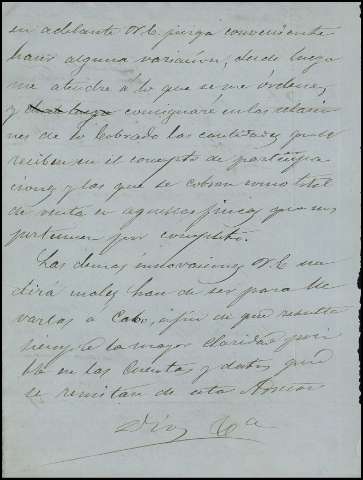 en adelante V.E. juzga conveniente
hacer alguna variación, desde luego
me atendré a lo que se me ordene,
y consignaré en las relacio
nes de lo Cobrado las cantidades que se
reciben en el concepto de participa
ciones y las que se cobran como total
de renta en aquellas fincas que nos
pertenecen por completo.
Las demas innovaciones V.E. me
dirá cuales han de ser para lle
varlas á Cabo, á fin de que resulte
siempre la mayor claridad posi
ble en las Cuentas y datos que
se remitan de esta Admon
Dios &a